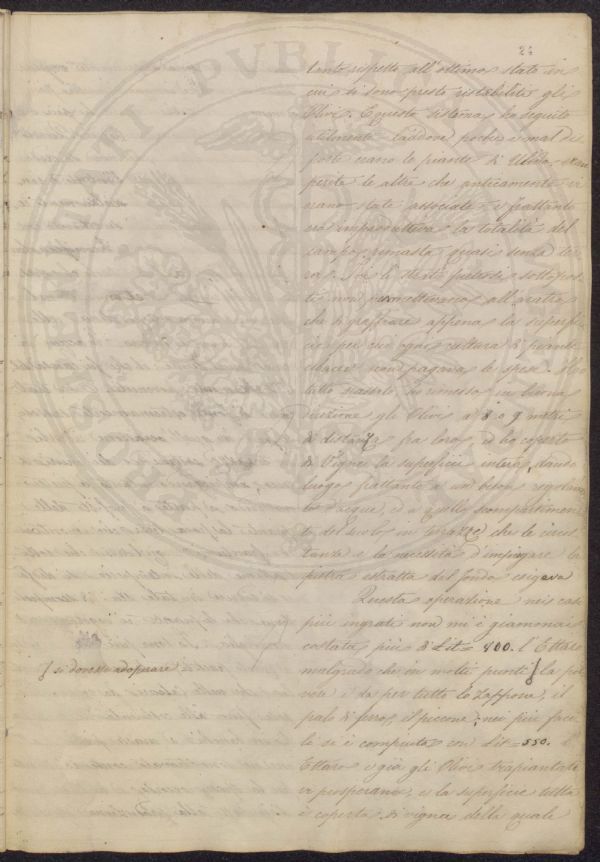 24
tanto rispetto all'ottimo stato in
cui si sono presto ristabiliti gli
Olivi. E questo sistema ho seguito
utilmente laddove poche e mal di
poste erano le piante di Ulivo,
perite le altre che anticamente vi
erano state associate, e frattanto
era improduttiva la totalità del
campo, rimasta quasi senza ter
ra. Poi li strati sottopos
ti non permettevano all'aratro
che di graffiare appena la superfi
cie per cui ogni cultura di piante
erbacee non pagava le spese. Ho
tutto rimesso in buona
gli Olivi a 8 o 9 metri
di distanza fra loro, ed ho coperto
di Vigne la superficie intera, dando
luogo frattanto a un buon regolam
to d'acque, ed a quello scompartimen
to del suolo in terrazze che le circos
tanze e la necessità d'impiegare la
pietra estratta dal fondo esigeva
Questa operazione nei casi
più ingrati non mi è giammai
costata più di Lit = 800. l'Ettaro
malgrado che in molti punti si dovesse adoprare la pol
vere e da per tutto lo zappone, il
palo di ferro, il piccone; nei più faci
li si è compiuta con Lit = 550. l'
Ettaro e già gli Olivi trapiantati
vi prosperano, e la superficie tutta
è coperta di vigna della quale
PUBLI